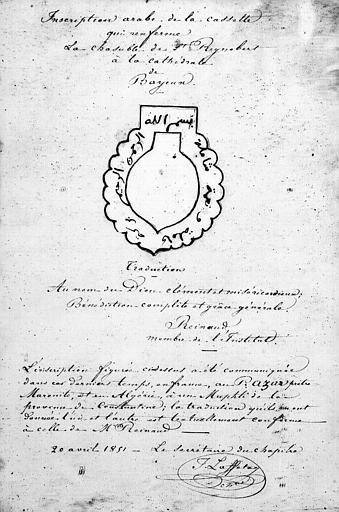 Inscription arabe de la cassette
qui renferme
La chasuble de St Regnobert
à la cathédrale
de
Bayeux.
بسم الله
الرحمن الرحيم
Traduction
Au nom du Dieu clément et miséricordieux;
Bénédiction complète et grâce générale.
Reinaud,
membre de l'Institut
L'inscription figurée ci-dessus a été communiquée
dans ces derniers temps, en france, au P. azar prêtre
Maronite, et en Algérie, à un Muphti de la
province de Constantine; la traduction qu'ils ont
donnée l'un et l'autre est textuellement conforme
à celle de Mr Reinaud
20 avril 1851 — Le secrétaire du chapitre
J. Laffetay